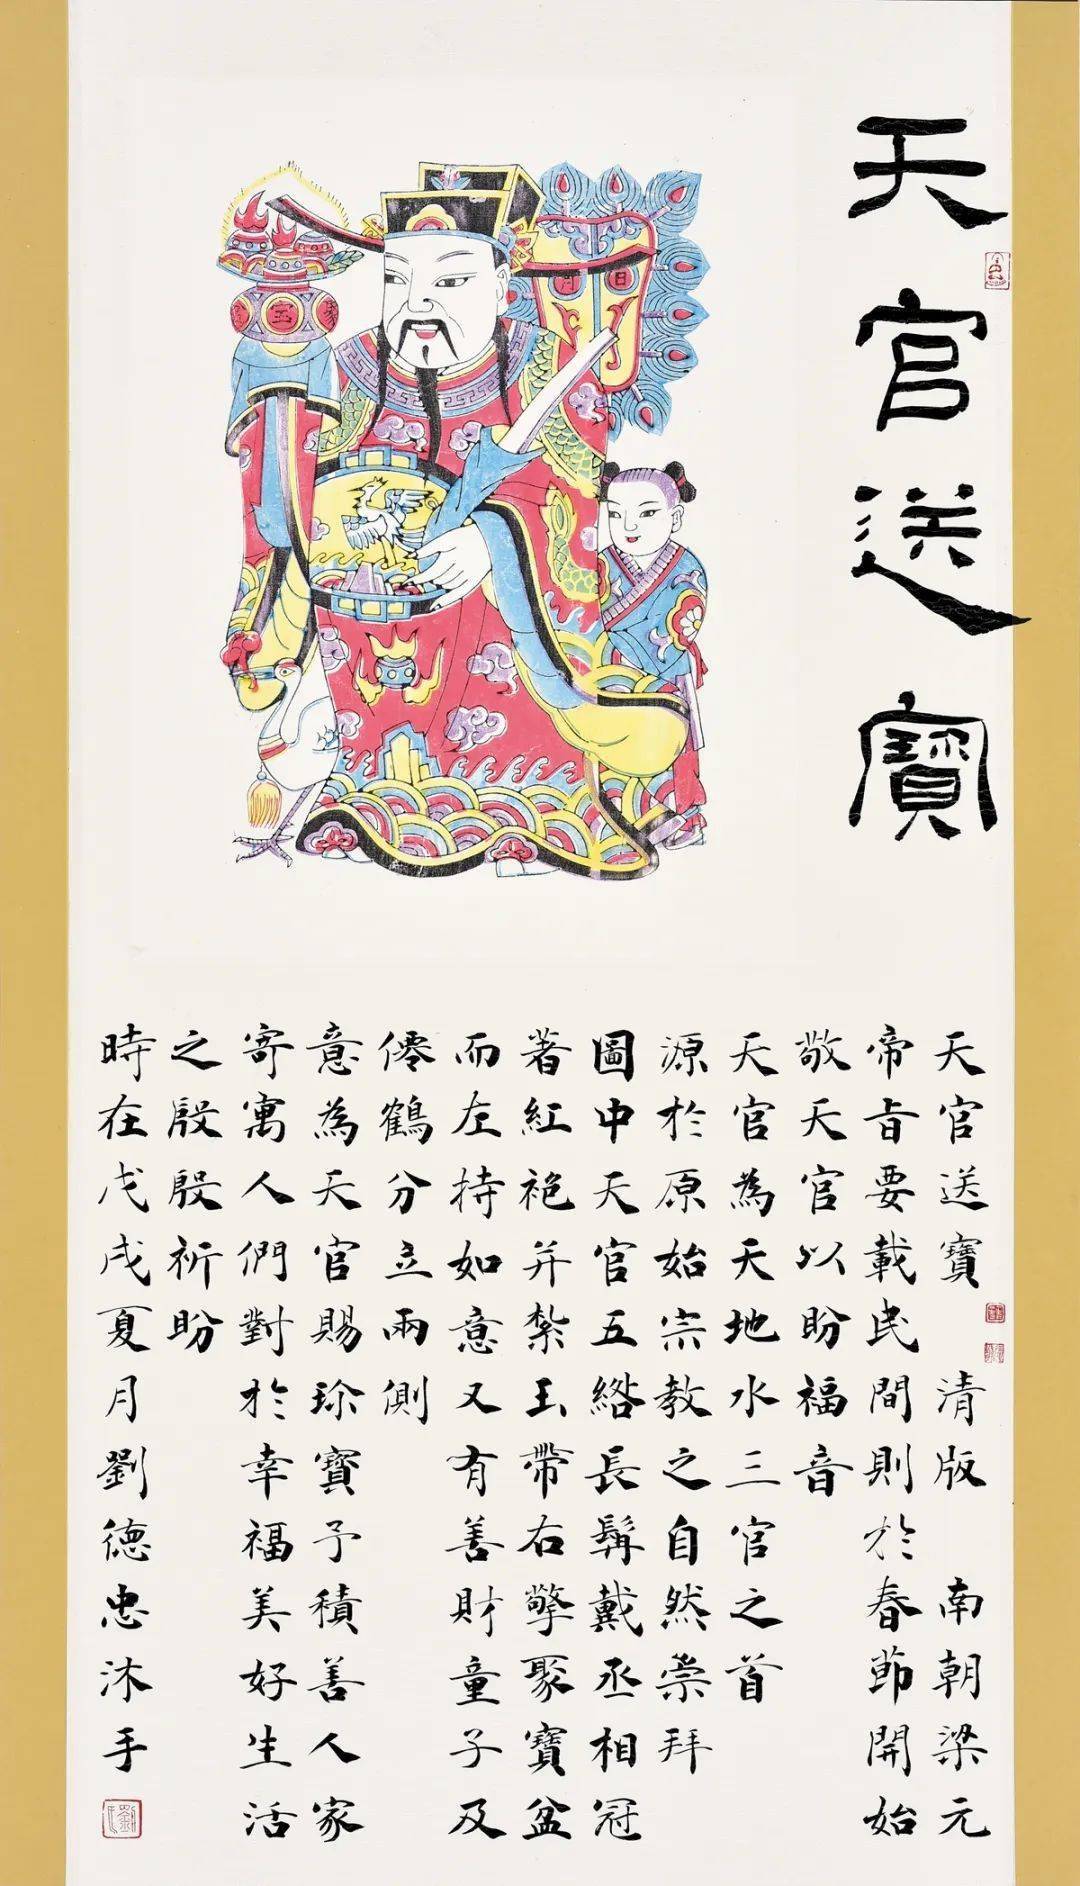 天官送寶
日月
聚宝
天官送寶 清版 南朝梁元
帝旨要載民間則於春節開始
敬天官以盼福音
天官為天地水三官之首
源於原始宗教之自然崇拜
圖中天官五綹長髯戴丞相冠
著紅袍并紮玉帶右擎聚寶盆
而左持如意又有善財童子及
僊鶴分立兩側
意為天官賜珍寶予積善人家
寄寓人們對於幸福美好生活
之殷殷祈盼
時在戊戌夏月劉德忠沐手